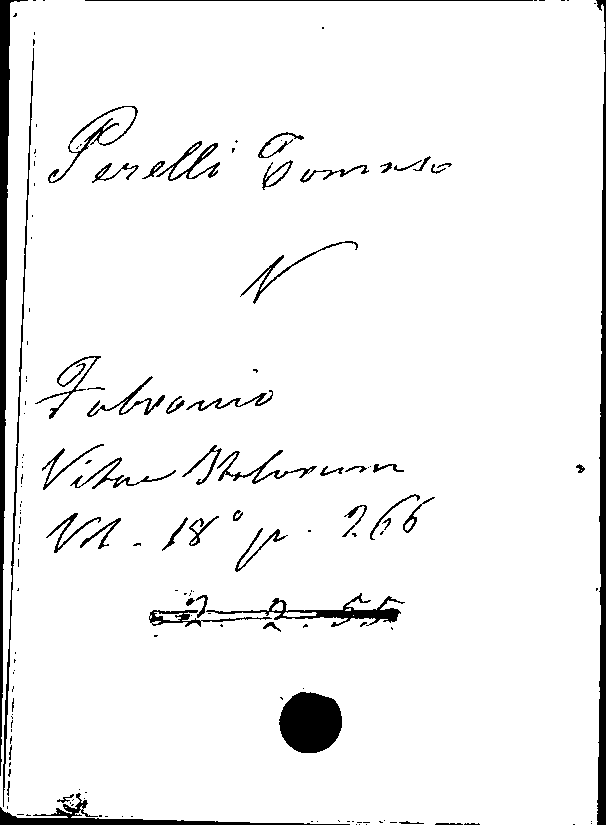 Perelli Tomaso
V
Fabronio
Vitae Italorum
Vol. 18° p. 266
2. 2. 55